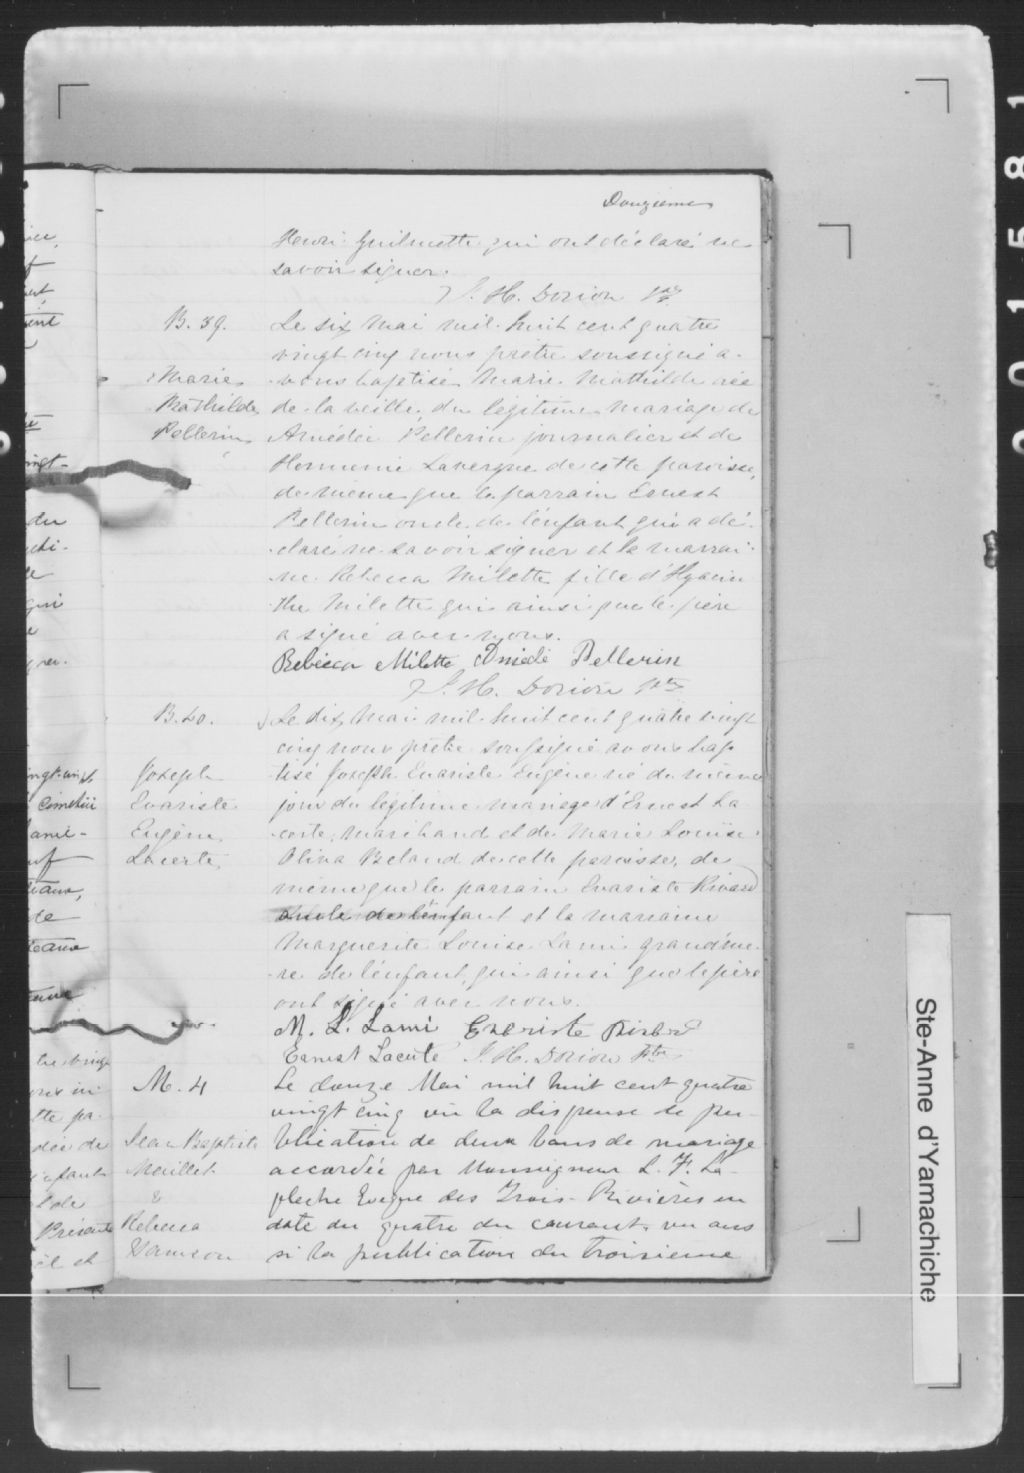 Douzième
Henri Guilmette qui ont déclaré ne
savoir signer.
J. H. Dorion ptre
B. 39.
Marie
Mathilde
Pellerin
Le six Mai mil huit cent quatre
vingt cinq nous prêtre soussigné a-
vons baptisé Marie Mathilde née
de la veille, du légitime mariage de
Amédée Pellerin journalier et de
Hermenie Lavergne de cette paroisse,
de même que le parrain Ernest
Pellerin oncle de l'enfant qui a dé-
claré ne savoir signer et la marrai-
ne Rebecca Milette fille d'Hyacin
the Milette qui ainsi que le père
a signé avec nous.
Rebecca Milette Amédé Pellerin
J. H. Dorion ptre
B. 40.
Joseph
Evariste
Eugène
Lacerte
Le dix Mai mil huit cent quatre vingt
cinq nous prêtre soussigné avons bap
tisé Joseph Evariste Eugène né du même
jour du légitime mariage d'Ernest La
certe, marchand et de Marie Louise
Oliva Beland de cette paroisse, de
même que le parrain Evariste Rivard
oncle de l'enfant et la marraine
Marguerite Louise Lami grand'mè-
re de l'enfant, qui ainsi que le père
ont signé avec nous.
M. L. Lami Evariste Rivard
Ernest Lacerte J. H. Dorion Ptre
M. 4
Jean Baptiste
Maillet
&
Rebecca
Le douze Mai mil huit cent quatre
vingt cinq vu la dispense de pu-
blication de deux bans de mariage
accordée par Monseigneur L. F. La-
fleche Evêque des Trois-Rivières en
date du quatre du courant, vu aus
si la publication du troisieme
Ste-Anne d'Yamachiche